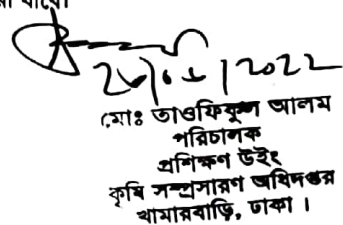 যাবে।
মোঃ তাওফিকুল আলম
পরিচালক
প্রশিক্ষণ উইং
কৃষি সম্প্রসারণ অধিদপ্তর
খামারবাড়ি, ঢাকা ।